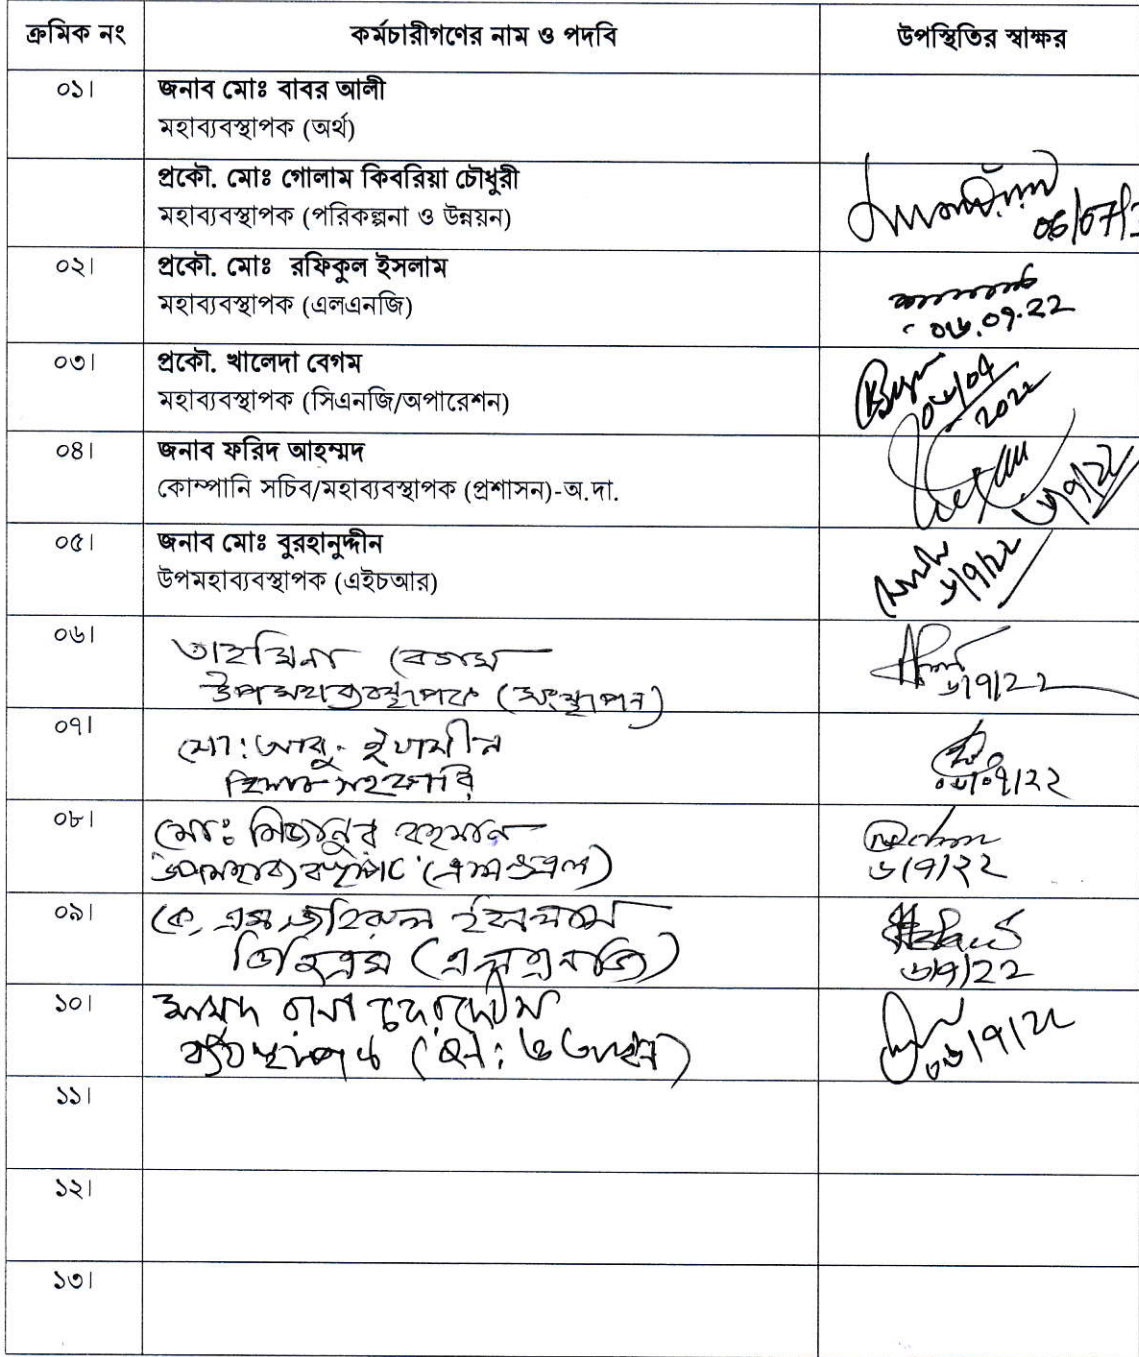 ক্রমিক নং কর্মচারীগণের নাম ও পদবি উপস্থিতির স্বাক্ষর
০১। জনাব মোঃ বাবর আলী
মহাব্যবস্থাপক (অর্থ)
প্রকৌ. মোঃ গোলাম কিবরিয়া চৌধুরী
মহাব্যবস্থাপক (পরিকল্পনা ও উন্নয়ন)
০২। প্রকৌ. মোঃ রফিকুল ইসলাম
মহাব্যবস্থাপক (এলএনজি)
০৬.০৭.২২
০৩। প্রকৌ. খালেদা বেগম
মহাব্যবস্থাপক (সিএনজি/অপারেশন)
০৪। জনাব ফরিদ আহম্মদ
কোম্পানি সচিব/মহাব্যবস্থাপক (প্রশাসন)-অ.দা.
৬/৭/২২
০৫। জনাব মোঃ বুরহানুদ্দীন
উপমহাব্যবস্থাপক (এইচআর)
৬/৭/২২
০৬। তাহমিনা বেগম
উপমহাব্যবস্থাপক (সংস্থাপন)
৬/৭/২২
০৭। মো: আবু ইয়ামীন
হিসাব সহকারি
০৬/০৭/২২
০৮। মোঃ মিজানুর রহমান
উপমহাব্যবস্থাপক
৬/৭/২২
০৯। কে, এম জহিরুল ইসলাম
ডিজিএম (এলএনজি)
৬/৭/২২
১০।
ব্যবস্থাপক
০৬/৭/২২
১১।
১২।
১৩।